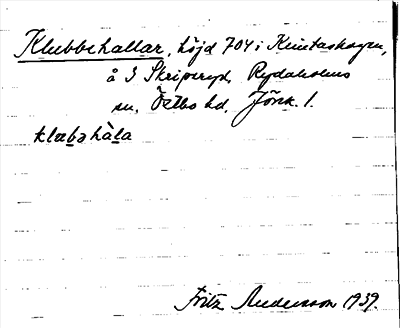 Klubbehallar, höjd 704 i Knutaskogen,
å S Skripseryd, Rydaholms
sn, Östbo hd, Jönk. l.
klœbəhàla
Fritz Andersson 1939.